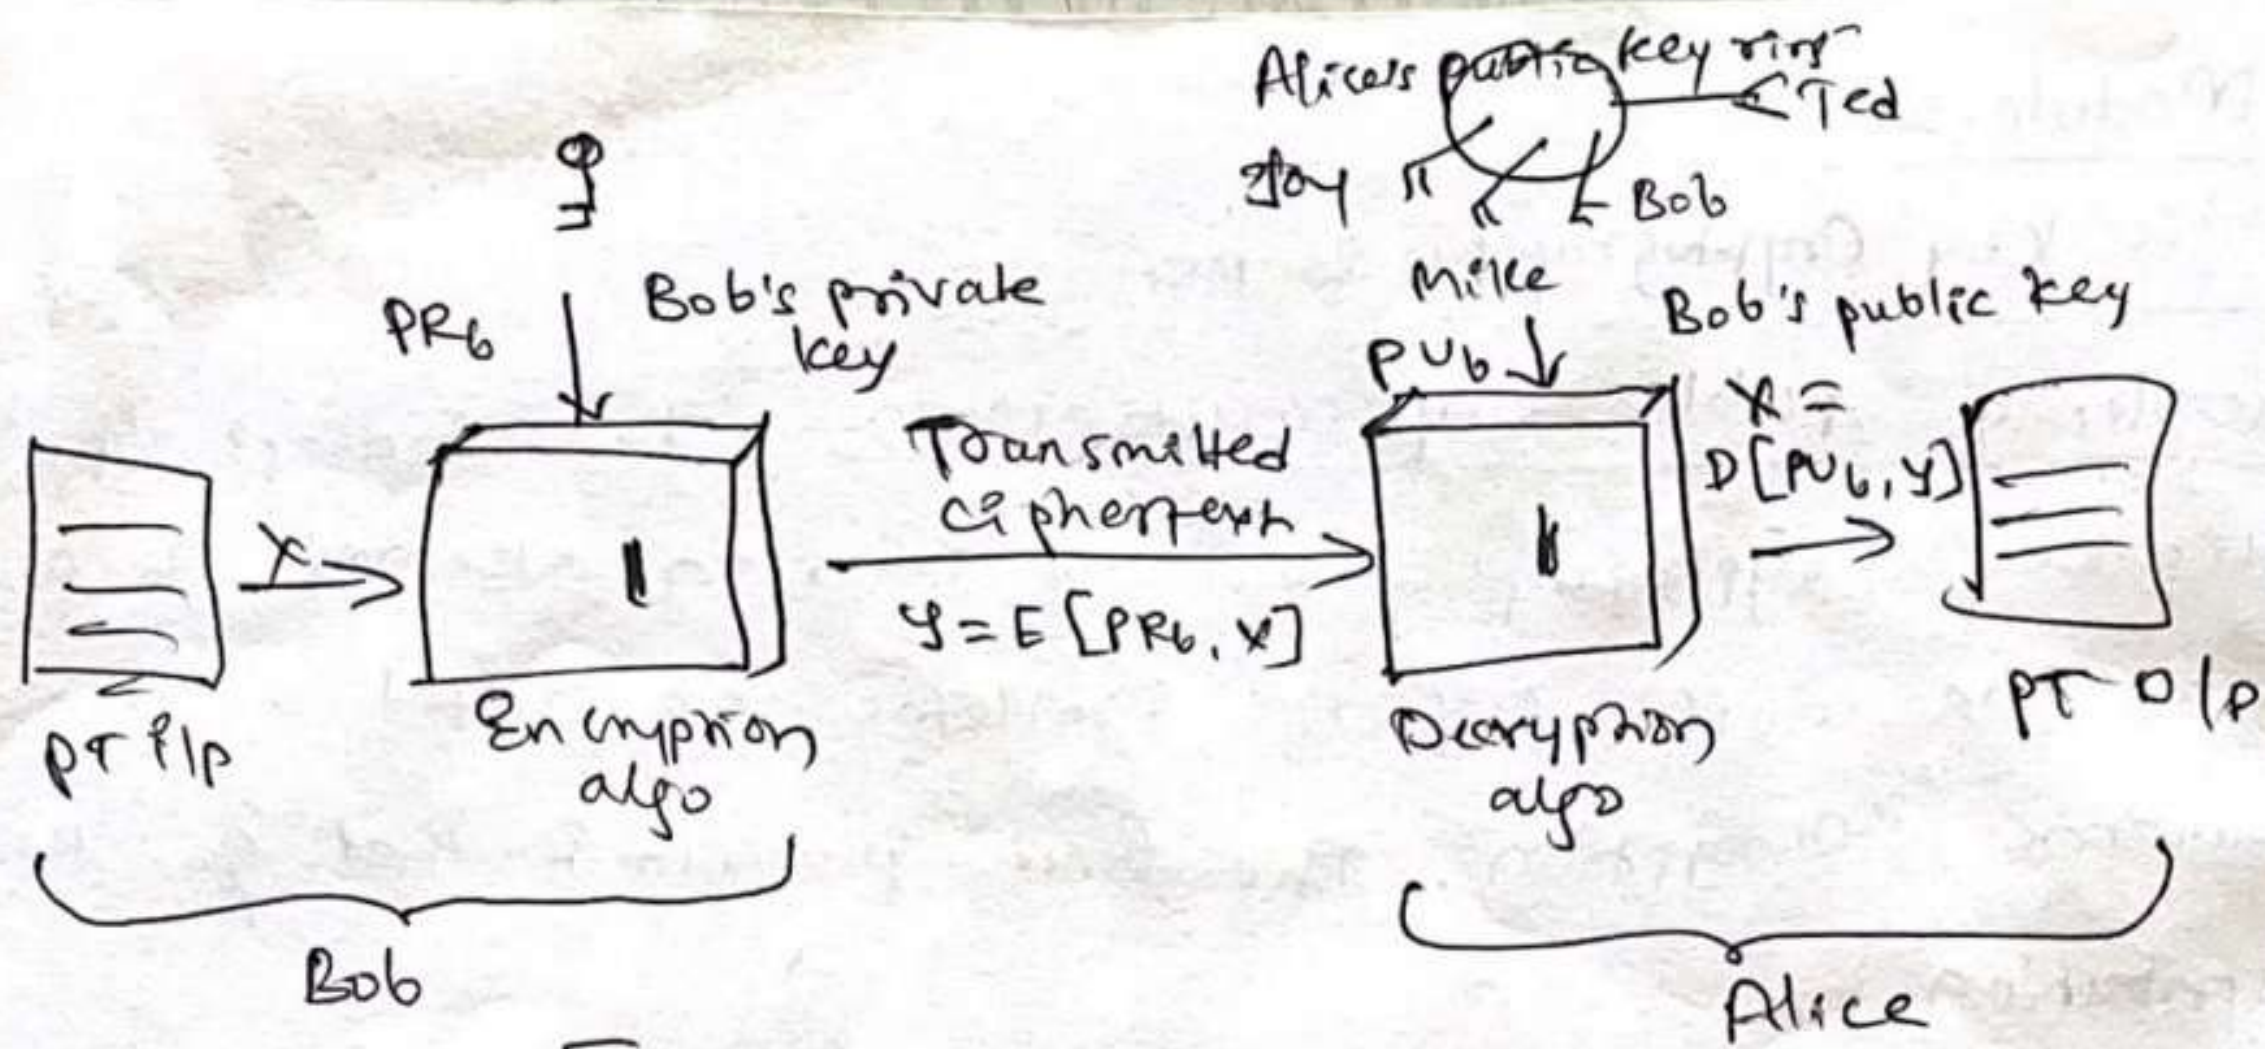 Alice's public key ring
Ted
Joy
Bob
Mike
PRb
Bob's private
key
PUb
Bob's public key
X =
D[PUb, Y]
Transmitted
ciphertext
X
Y = E[PRb, X]
PT i/p
Encryption
algo
Decryption
algo
PT O/P
Bob
Alice